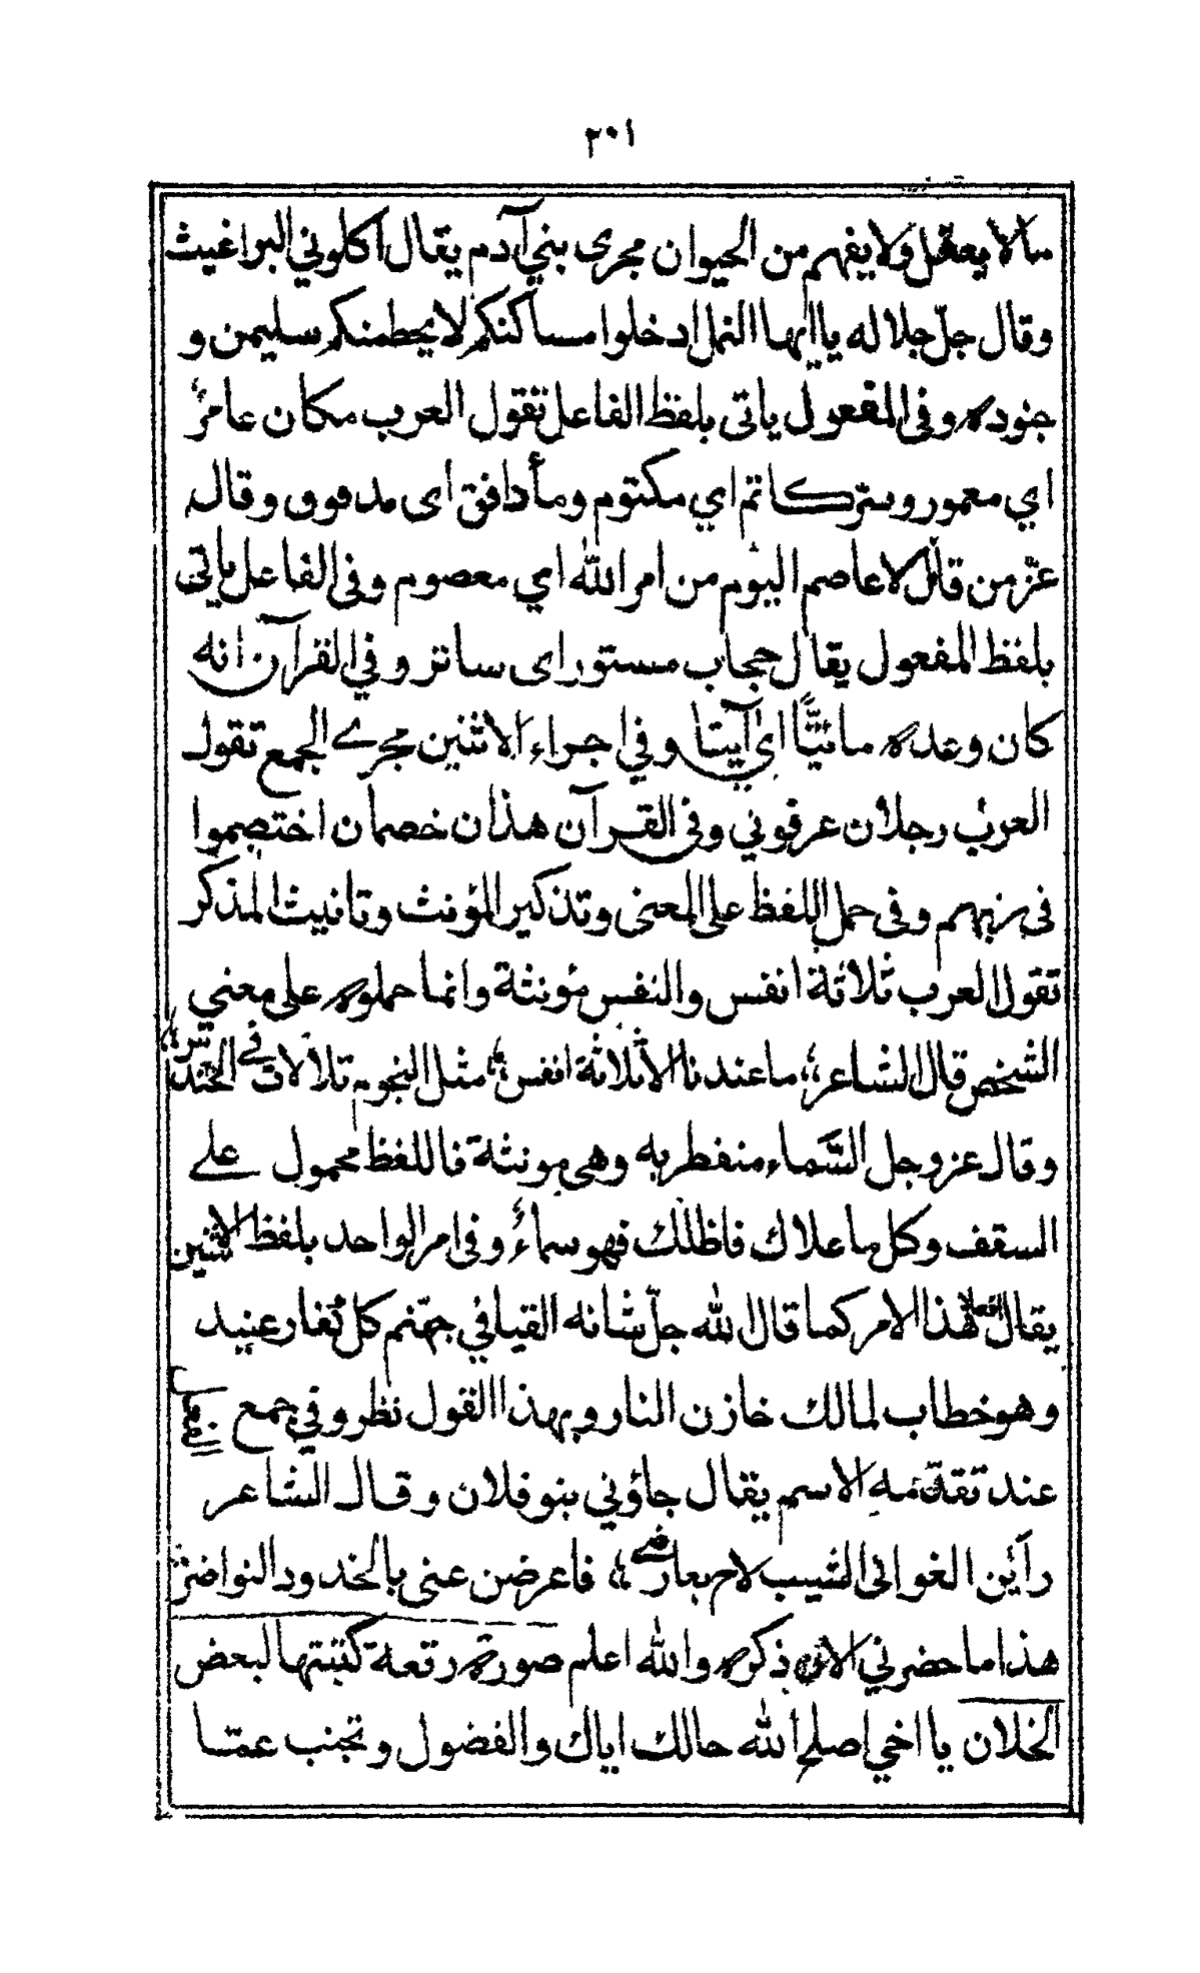 ٣٠١
ما لا يعقل ولا يفهم من الحيوان مجرى بني آدم يقال اكلوني البراغيث
وقال جلّ جلاله يا ايها النمل ادخلوا مساكنكم لا يحطمنكم سليمن و
جنوده وفى المفعول ياتى بلفظ الفاعل تقول العرب مكان عامرٌ
اي معمور وسرّ كاتم اي مكتوم ومأ دافق اى مدفوق وقال
عزّ من قائل لا عاصم اليوم من امر الله اي معصوم وفى الفاعل ياتى
بلفظ المفعول يقال حجاب مستور اى ساتر وفي القرآن انه
كان وعده مأتيًّا اي آيتا وفي اجراء الاثنين مجرے الجمع تقول
العرب رجلان عرفوني وفى القرآن هذان خصمان اختصموا
فى ربهم وفى حمل اللفظ على المعنى وتذكير المؤنث وتانيث المذكر
تقول العرب ثلاثة انفس والنفس مؤنثة وانما حملوه على معني
الشخص قال الشاعر ؛ ما عندنا الا ثلاثة انفس ؛ مثل النجوم تلألأت فے الحندس ؛
وقال عز وجل السَّماء منفطر به وهى مونثة فاللفظ محمول علے
السقف وكل ما علاك فاظلك فهو سماءٌ وفى امر الواحد بلفظ الاثنين
يقال افعلا هذا الامر كما قال الله جلّ شانه القيا في جهّنم كل كفار عنيد
وهو خطاب لمالك خازن النار وبهذا القول نظر وفي جمع
عند تقدّمه الاسم يقال جاؤني بنو فلان وقال الشاعر
رأين الغوانى الشيب لاح بعارضے ؛ فاعرضن عنى بالخدود النواضر
هذا ما حضرني الان ذكره والله اعلم صورة رقعة كتبتها لبعض
الخلان يا اخي اصلح الله حالك اياك والفضول وتجنب عمّا